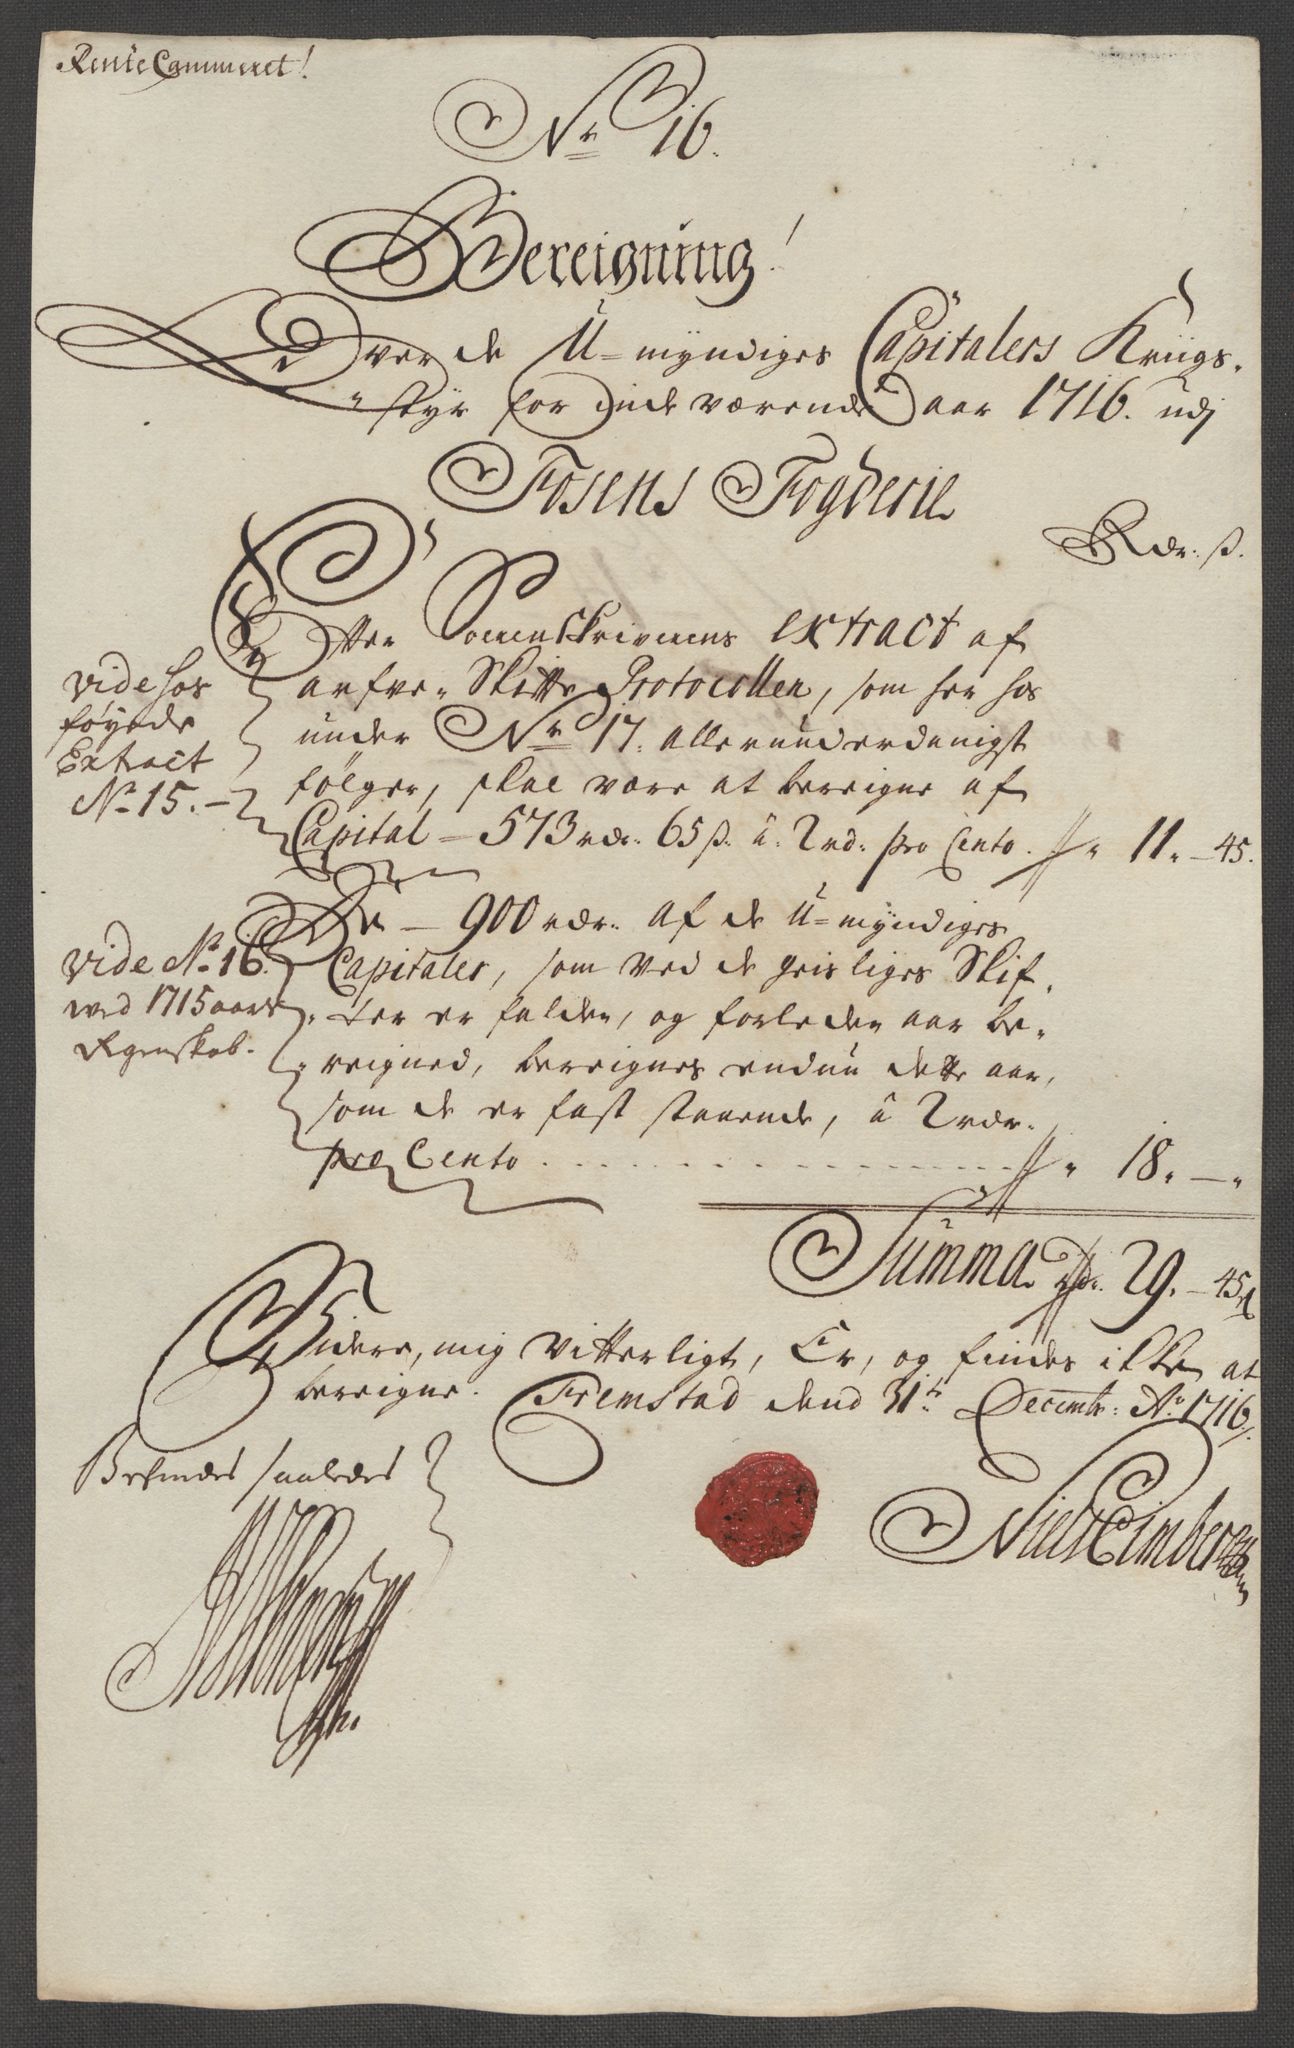 Rente Cammeret!
Nr 16.
Bereigning!
Over de U=myndiges Capitalers Kriigs-
styr for inde værende aar 1716. udj
Fosens Fogderie
Rdr. ß.
Efter Sorenskrivernes extract af
arfve- Skifte Protocollen, som her hos
under Nr 17. allerunderdanigst
følger, skal være at bereigne af
Capital - 573 rdr. 65 ß. a. 2 rd. pro Cento. 11. - 45.
vide hos
føyede
Extract
No 15. -
De - 900 rdr. af de U=myndiges
Capitaler, som ved de geistliges Skif-
ter er falden, og forleden aar be-
reigned, bereignes endnu dette aar,
som de er fast staaende, a 2 rdr.
pro Cento . . . . . 18. - "
vide No 16.
ved 1715 aars
Regenskab.
Summa rdr. 29. - 45 ß
Videre, mig vitterligt, Er, og findes ikke at
bereigne. Fremstad dend 31te Decembr: Ao 1716.
Befindes saaledes
Niels Eimbersen